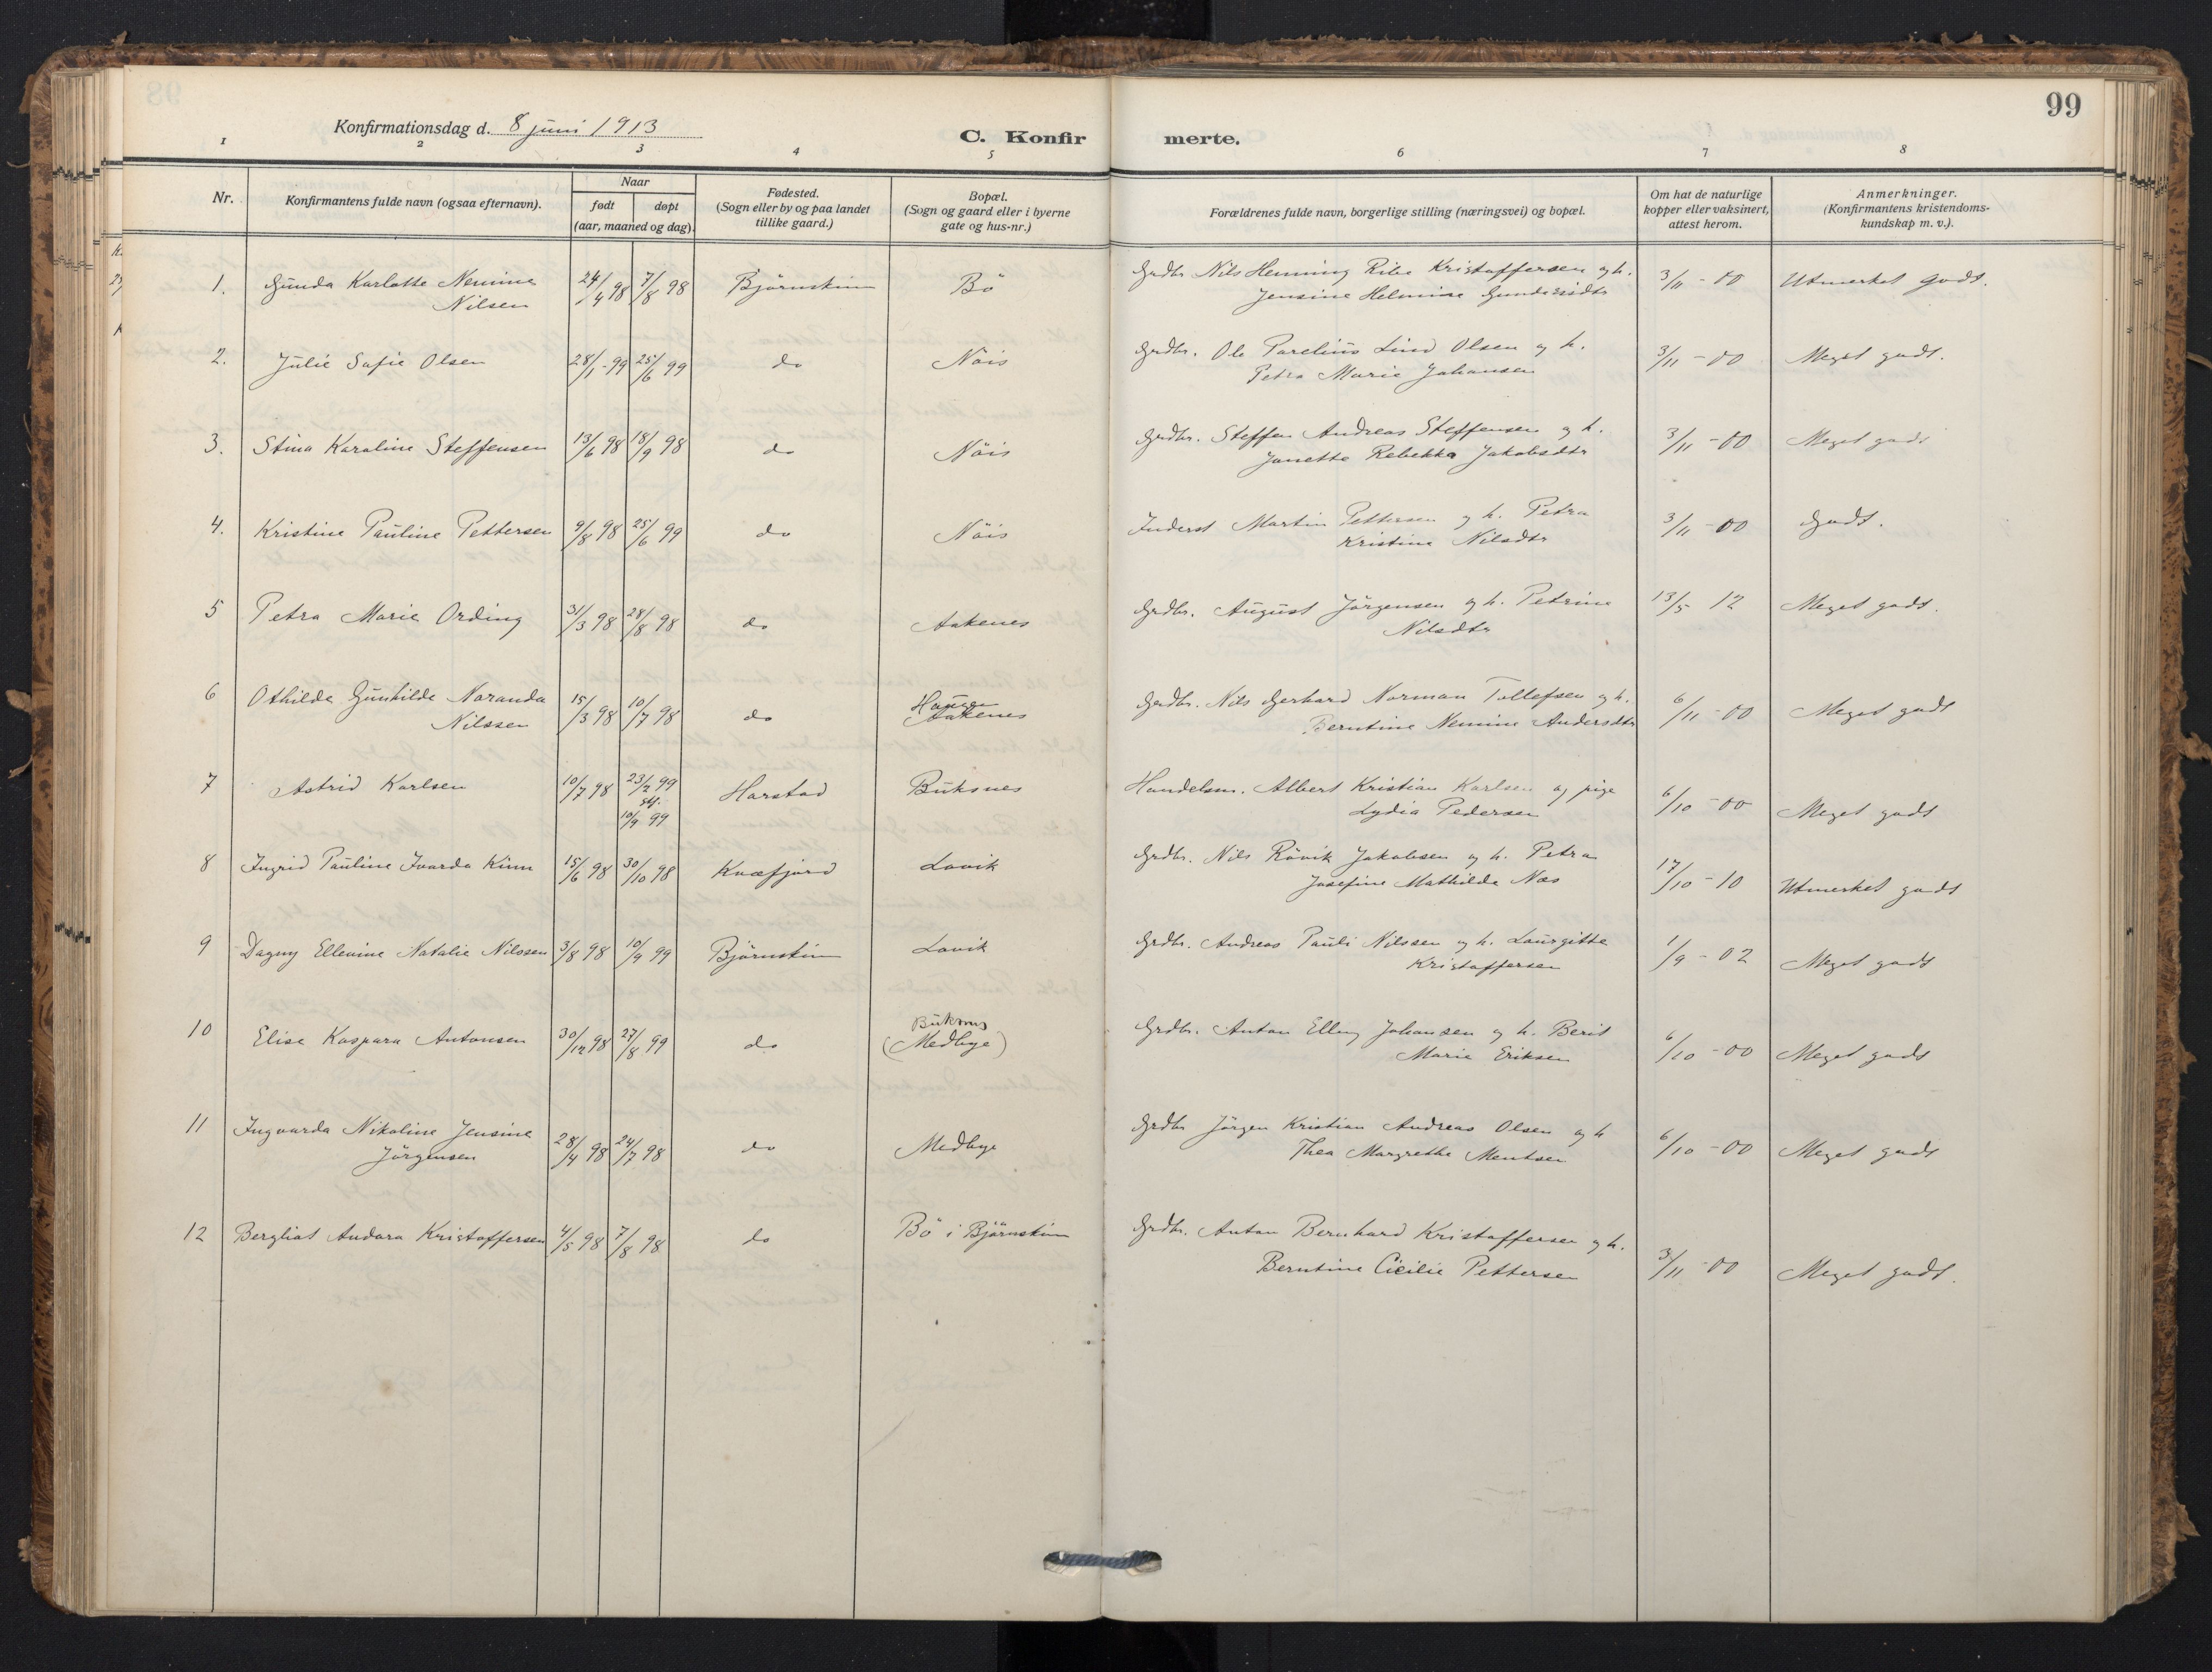 99
Konfirmationsdag d. 8 juni 1913
C. Konfirmerte.
1 2 3 4 5 6 7 8
Nr.
Konfirmantens fulde navn (ogsaa efternavn).
Naar
født
døpt
(aar, maaned og dag).
Fødested.
(Sogn eller by og paa landet
tillike gaard.)
Bopæl.
(Sogn og gaard eller i byerne
gate og hus-nr.)
Forældrenes fulde navn, borgerlige stilling (næringsvei) og bopæl.
Om hat de naturlige
kopper eller vaksinert,
attest herom.
Anmerkninger.
(Konfirmantens kristendoms-
kundskap m. v.).
1. Gunda Karlotte Nemine 24/4 98 7/8 98 Björnskinn Bö Grdbr. Nils Henning Ribe Kristoffersen og h. 3/11 - 00 Utmerket godt.
Nilsen Jensine Helmine Gundersdtr
2. Julie Sofie Olsen 28/1 - 99 25/6 99 do Nöis Grdbr. Ole Parelius Lind Olsen og h. 3/11 - 00 Meget godt.
Petra Marie Johansen
3. Stina Karoline Steffensen 13/6 98 18/9 98 do Nöis Grdbr. Steffen Andreas Steffensen og h. 3/11 - 00 Meget godt
Janette Rebekka Jakobsdtr
4. Kristine Pauline Pettersen 9/8 98 25/6 99 do Nöis Inderst Martin Pettersen og h. Petra 3/11 - 00 Godt.
Kristine Nilsdtr
5 Petra Marie Ording 31/3 98 28/8 98 do Aakenes Grdbr. August Jörgensen og h. Petrine 13/5 12 Meget godt.
Nilsdtr
6 Othilde Gunhilde Noranda 15/3 98 10/7 98 do Haugen Grdbr. Nils Gerhard Norman Tollefsen og h. 6/11 - 00 Meget godt
Nilssen Aakenes Berntine Nemine Andersdtr
7 Astrid Karlsen 10/7 98 23/2 99 Harstad Buksnes Handelsm. Albert Kristian Karlsen og pige 6/10 - 00 Meget godt
stf. Lydia Pedersen
10/9 99
8 Ingrid Pauline Ivarda Kinn 15/6 98 30/10 98 Kvæfjord Lovik Grdbr. Nils Rövik Jakobsen og h. Petra 17/10 - 10 Utmerket godt
Josefine Mathilde Nas
9 Dagny Ellevine Natalie Nilssen 3/8 98 10/9 99 Björnskinn Lovik Grdbr. Andreas Pauli Nilssen og h. Laurgitte 1/9 - 02 Meget godt
Kristoffersen
10 Elise Kaspara Antonsen 30/12 98 27/8 99 do Buksnes Grdbr. Anton Elling Johansen og h. Berit 6/10 - 00 Meget godt
(Medbye) Marie Eriksen
11 Ingvarda Nikoline Jensine 28/4 98 24/7 98 do Medbye Grdbr Jörgen Kristian Andreas Olsen og h 6/10 - 00 Meget godt
Jörgensen Thea Margrethe Mentsen
12 Bergliot Andora Kristoffersen 4/5 98 7/8 98 do Bö i Björnskinn Grdbr. Anton Bernhard Kristoffersen og h. 3/11 - 00 Meget godt.
Berntine Cicilie Pettersen